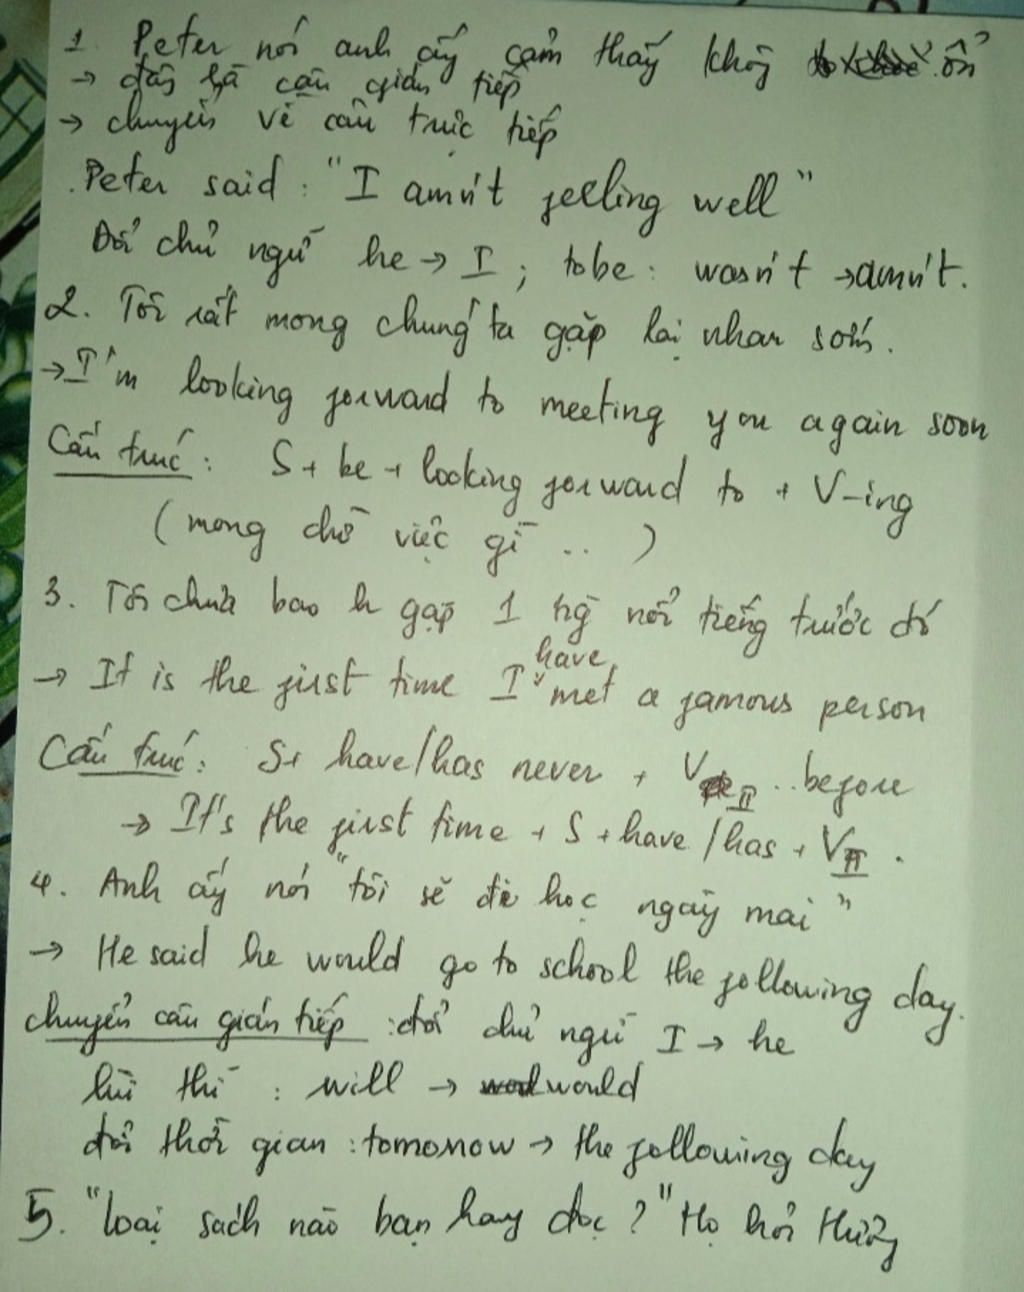 1. Peter nói anh ấy cảm thấy khôg ổn
→ đây là câu gián tiếp
→ chuyển về câu trực tiếp
. Peter said : "I amn't feeling well"
Đổi chủ ngữ he → I ; tobe : wasn't → amn't.
2. Tôi rất mong chúng ta gặp lại nhau sớm.
→ I'm looking forward to meeting you again soon
Cấu trúc : S + be + looking forward to + V-ing
(mong chờ việc gì .. )
3. Tôi chưa bao h gặp 1 ng nổi tiếng trước đó
→ It is the first time I have met a famous person
Cấu trúc : S + have/has never + V II .. before
→ It's the first time + S + have/has + VII .
4. Anh ấy nói "tôi sẽ đi học ngày mai"
→ He said he would go to school the following day.
chuyển câu gián tiếp : đổi chủ ngữ I → he
lùi thì : will → would
đổi thời gian : tomorrow → the following day
5. "Loại sách nào bạn hay đọc ?" Họ hỏi